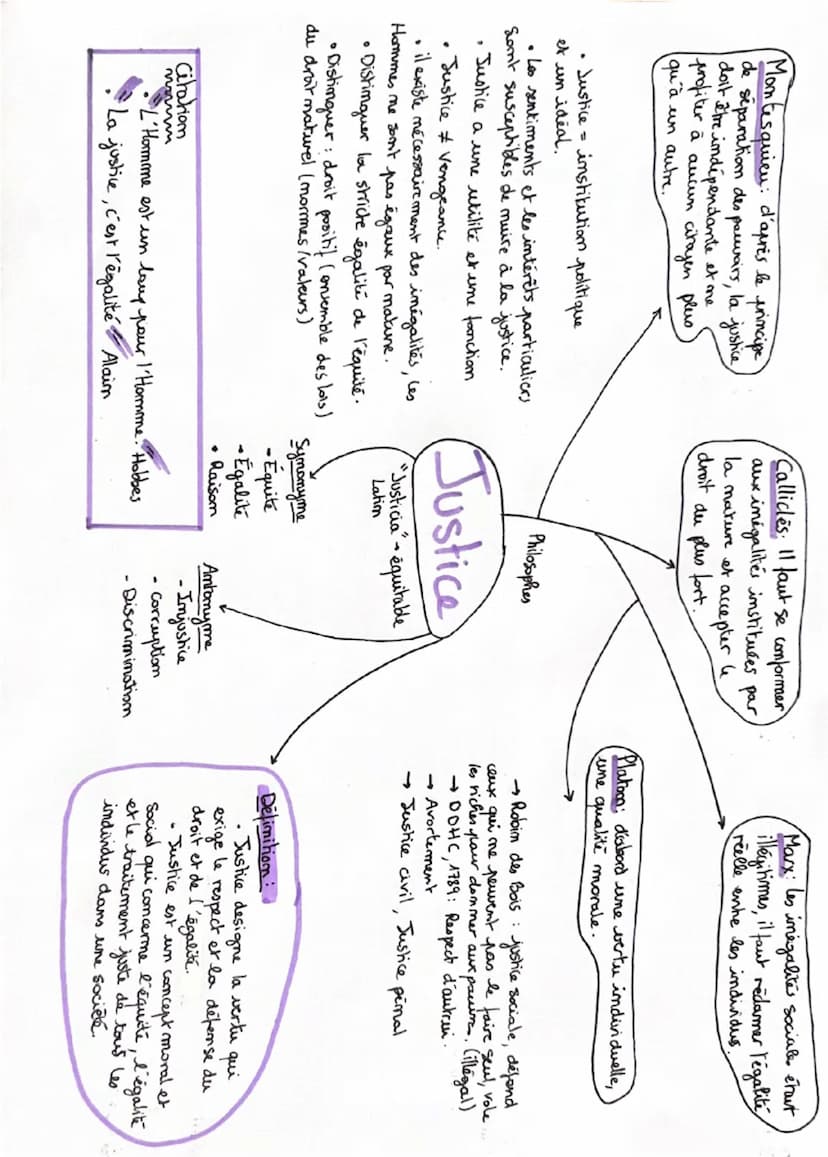 Montesquieu : d'après le principe
de séparation des pouvoirs, la justice
doit être indépendante et ne
profiter à aucun citoyen plus
qu'à un autre.
Calliclès : Il faut se conformer
aux inégalités instituées par
la nature et accepter le
droit du plus fort.
Marx : les inégalités sociales étant
illégitimes, il faut réclamer l'égalité
réelle entre les individus.
Platon : d'abord une vertu individuelle,
une qualité morale.
Philosophes
Justice
"Justicia" → équitable
Latin
• Justice = institution politique
et un idéal.
• Les sentiments et les intérêts particuliers
sont susceptibles de nuire à la justice.
• Justice a une utilité et une fonction
• Justice ≠ Vengeance.
• il existe nécessairement des inégalités, les
Hommes ne sont pas égaux par nature.
• Distinguer la stricte égalité de l'équité.
• Distinguer : droit positif (ensemble des lois)
du droit naturel (normes/valeurs)
→ Robin des Bois : justice sociale, défend
ceux qui ne peuvent pas le faire seul, vole
les riches pour donner aux pauvres. (illégal)
→ DDHC, 1789 : Respect d'autrui.
→ Avortement
→ Justice civil, Justice pénal
Synonyme
- Équité
- Égalité
• Raison
Antonyme
- Injustice
- corruption
- Discrimination
Citation
• "L'Homme est un loup pour l'Homme." Hobbes
• "La justice, c'est l'égalité" Alain
Définition :
• Justice designe la vertu qui
exige le respect et la défense du
droit et de l'égalité.
• Justice est un concept moral et
social qui concerne l'équité, l'égalité
et le traitement juste de tous les
individus dans une société.